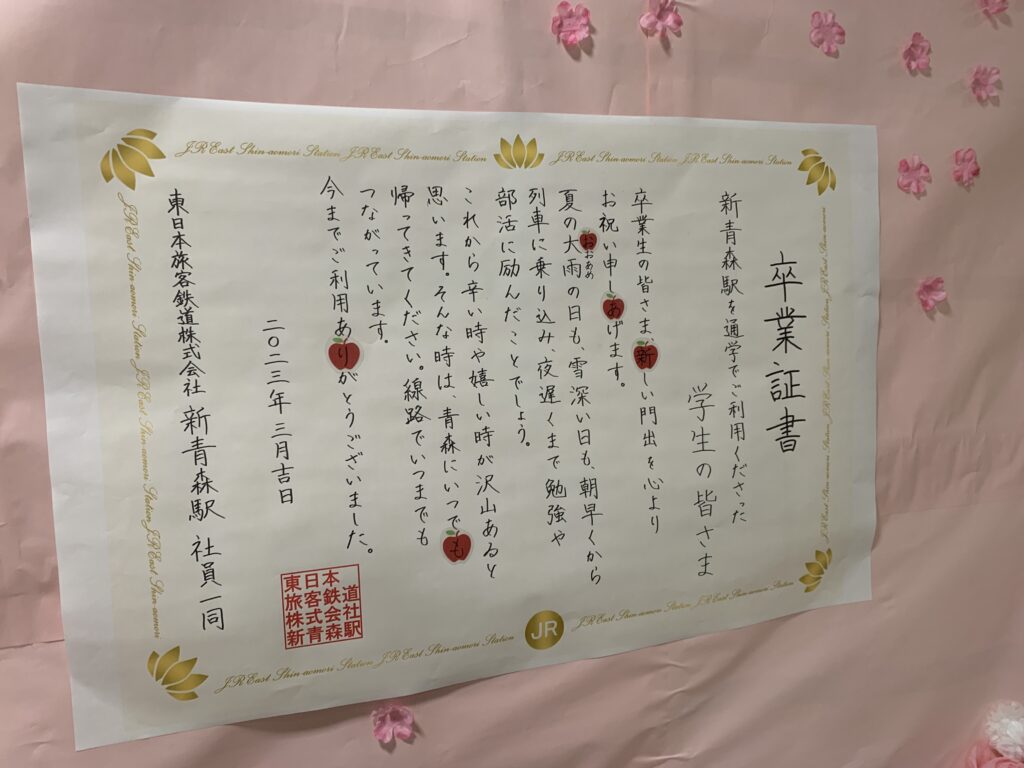 卒業証書
新青森駅を通学でご利用くださった
学生の皆さま
卒業生の皆さま、新しい門出を心より
お祝い申しあげます。
おおあめ
夏の大雨の日も、雪深い日も、朝早くから
列車に乗り込み、夜遅くまで勉強や
部活に励んだことでしょう。
これから辛い時や嬉しい時が沢山あると
思います。そんな時は、青森にいつでも
帰ってきてください。線路でいつまでも
つながっています。
今までご利用ありがとうございました。
二〇二三年 三月吉日
東日本旅客鉄道株式会社 新青森駅 社員一同
東日本
旅客鉄道
株式会社
新青森駅
JR East Shin-aomori Station JR East Shin-aomori Station
JR East Shin-aomori Station JR East Shin-aomori Station
JR East Shin-aomori Station JR East Shin-aomori Station JR East Shin-aomori Station
JR East Shin-aomori Station JR East Shin-aomori Station JR East Shin-aomori Station
JR East Shin-aomori Station JR East Shin-aomori Station
JR
JR East Shin-aomori Station JR East Shin-aomori Station